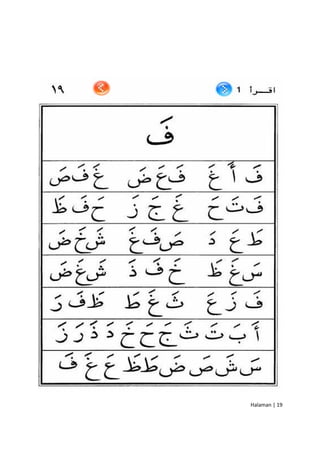 اقـــرأ ١ ١٩
فَ
فَ أَ غَ فَ عَ ضَ غَ فَ صَ
فَ تَ حَ غَ جَ زَ حَ فَ ظَ
طَ عَ دَ صَ فَ غَ شَ خَ ضَ
سَ غَ ظَ خَ فَ ذَ شَ غَ ضَ
فَ زَ عَ ثَ غَ طَ ظَ فَ رَ
أَ بَ تَ ثَ جَ حَ خَ دَ ذَ رَ زَ
سَ شَ صَ ضَ طَ ظَ عَ غَ فَ
Halaman | 19